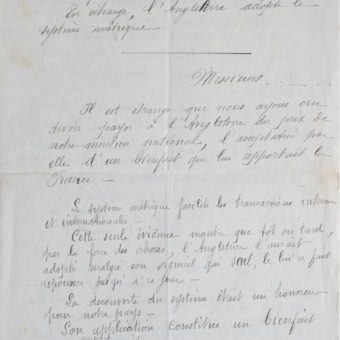 En échange, l'Angleterre adopte le
système métrique
Messieurs
Il est étrange que nous ayons cru
devoir payer à l'Angleterre du prix de
notre méridien national, l'acceptation par
elle d'un bienfait que lui apportait la
France —
Le système métrique facilite les transactions
et internationales —
Cette seule évidence montre que tôt ou tard,
par la force des choses, l'Angleterre l'aurait
adopté malgré son orgueil qui seul, le lui a fait
repousser jusqu'à ce jour —
La découverte du système était un honneur
pour notre pays —
Son application constitue un bienfait